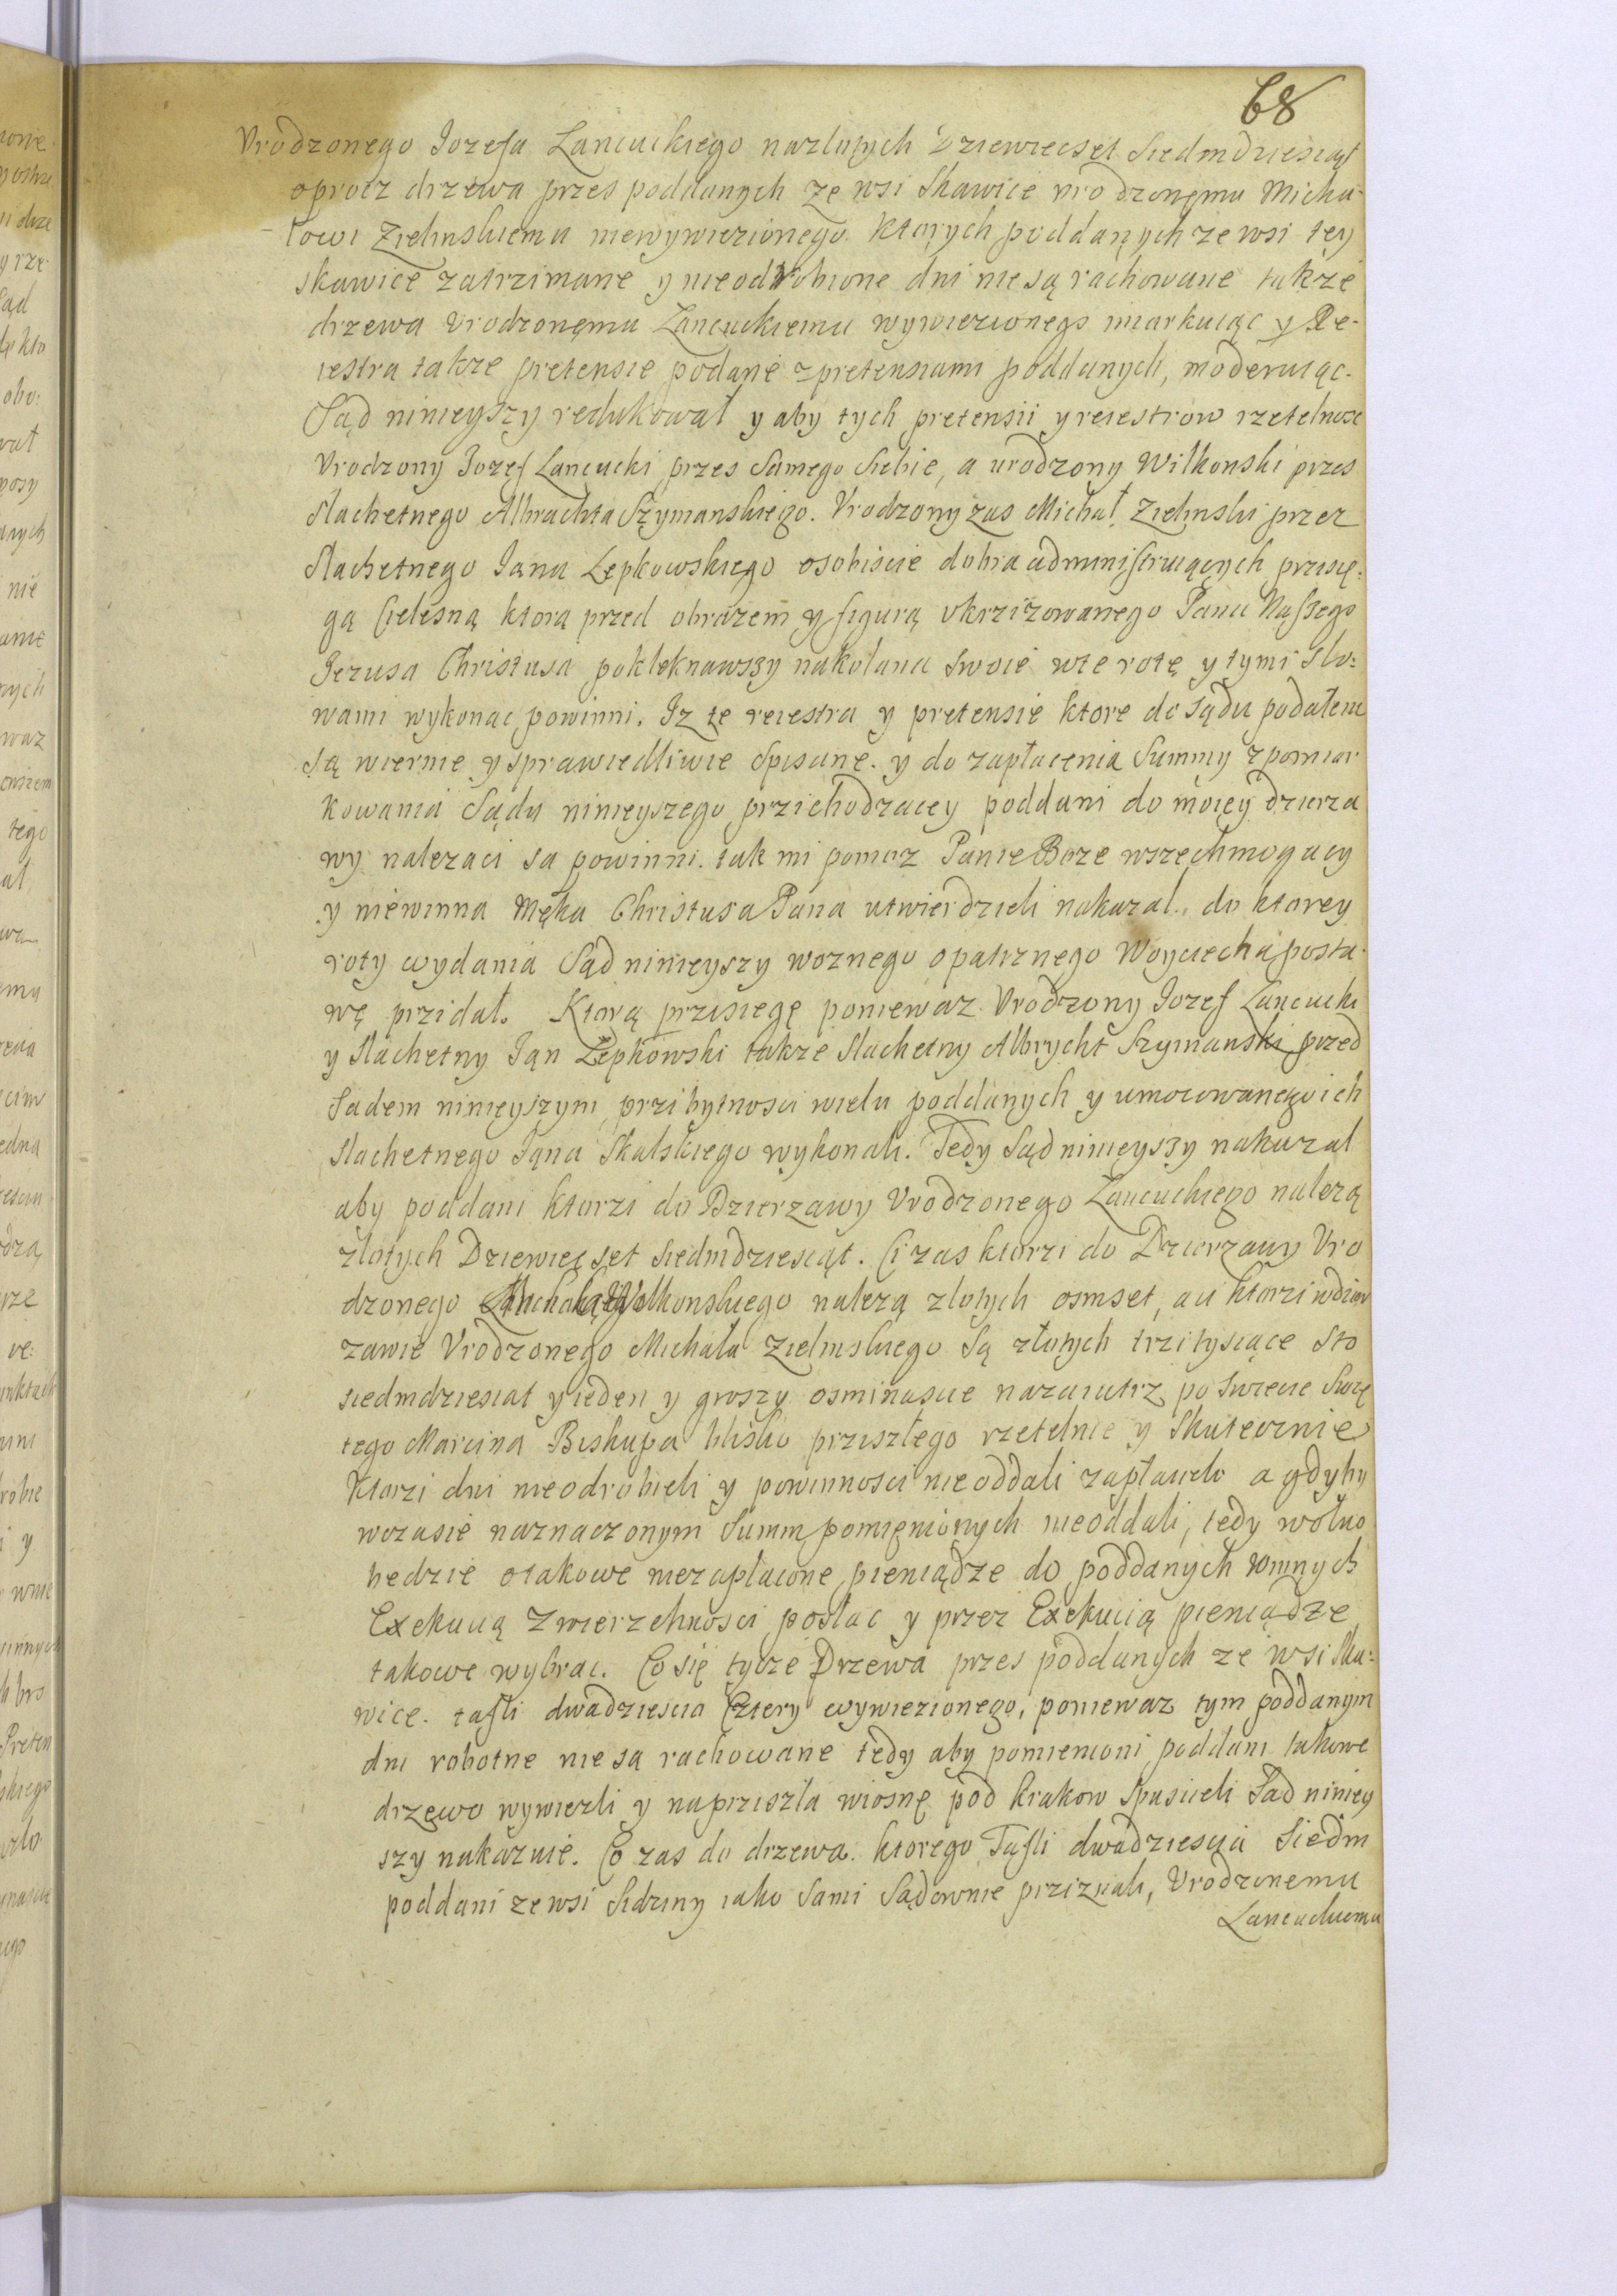 68
Vrodzonego Iozefa Lancuckiego nazlotych dziewiecset Siedmdziesiąt
oprocz drzewa przes poddanych ze wsi Skawice vrodzonemu Micha-
-łowi Zielinskiemu niewywiezionego. ktorych poddanych ze wsi tey
skawice zatrzimane y nieodrobione dni nie są rachowane takze
drzewa Vrodzonemu Lancuckiemu wywiezionego miarkuiąc y Re-
iestra takze pretensie podane z pretensiami poddanych, moderuiąc.
Sąd ninieyszy redukował y aby tych pretensii y reiestrow rzetelnosc
Vrodzony Iozef Lancucki przes Samego Siebie, a urodzony Wilkonski przes
Slachetnego Albrachta Szymanskiego. Vrodzony zas Michał Zielinski przez
Slachetnego Iana Lepkowskiego osobiscie dobra administruiących przisię:
gą Cielesną ktorą przed obrazem y figurą vkrzizowanego Pana Naszego
Iezusa Christusa pokleknawszy nakolana Swoie wte rotę y tymi Slo:
wami wykonac powinni. Iz te reiestra y pretensie ktore do Sądu podałem
są wiernie y sprawiedliwie Spisane. y do zapłacenia Summy z pomiar
kowania Sądu ninieyszego przichodzacey poddani do moiey dzierza
wy nalezaci sa powinni. tak mi pomoz Panie Boze wszechmogacy
y niewinna Męka Christusa Pana utwierdzieli nakazal. do ktorey
roty wydania Sąd ninieyszy woznego opatrznego Woyciecha posta-
wę przidał. Ktorą przisiegę poniewaz Vrodzony Iozef Lancucki
y Slachetny Ian Lepkowski takze Slachetny Albrycht Szymanski przed
Sadem ninieyszym przibytnosci wielu poddanych y umocowanego ich
Slachetnego Iana Skalskiego wykonali. Tedy Sąd ninieyszy nakazal
aby poddani ktorzi do Dzierzawy Vrodzonego Lancuckiego nalezą
zlotych Dziewiec set siedmdziesiąt. Ci zas ktorzi do Dzierzawy Vro
dzonego Wilkonskiego nalezą zlotych osmset, a ci ktorzi wdzier
zawie Vrodzonego Michała Zielinskiego Są złotych trzi tysiące Sto
siedmdziesiat y ieden y groszy osminascie nazaiutrz po Swiecie Swię
tego Marcina Biskupa blisko przyszłego rzetelnie y Skutecznie
Ktorzi dni nieodrobieli y powinnosci nieoddali zapłacieli a gdyby
wczasie naznaczonym Summ pomięnionych nieoddali, tedy wolno
bedzie otakowe niezapłacone pieniądze do poddanych winnych
Exekucią Zwierzchnosci posłac y przez Exekucią pieniądze
takowe wybrac. Co się tycze Drzewa przes poddanych ze wsi Ska:
wice. tafli dwadziescia Cztery wywiezionego, poniewaz tym poddanym
dni robotne nie są rachowane tedy aby pomienioni poddani takowe
drzewo wywiezli y naprziszła wiosnę pod krakow Spuscieli Sad niniey
szy nakazuie. Co zas do drzewa. ktorego Tafli dwadziescia Siedm
poddani ze wsi Sidziny iako Sami Sądownie prziznali, Vrodzonemu
Lancuckiemu